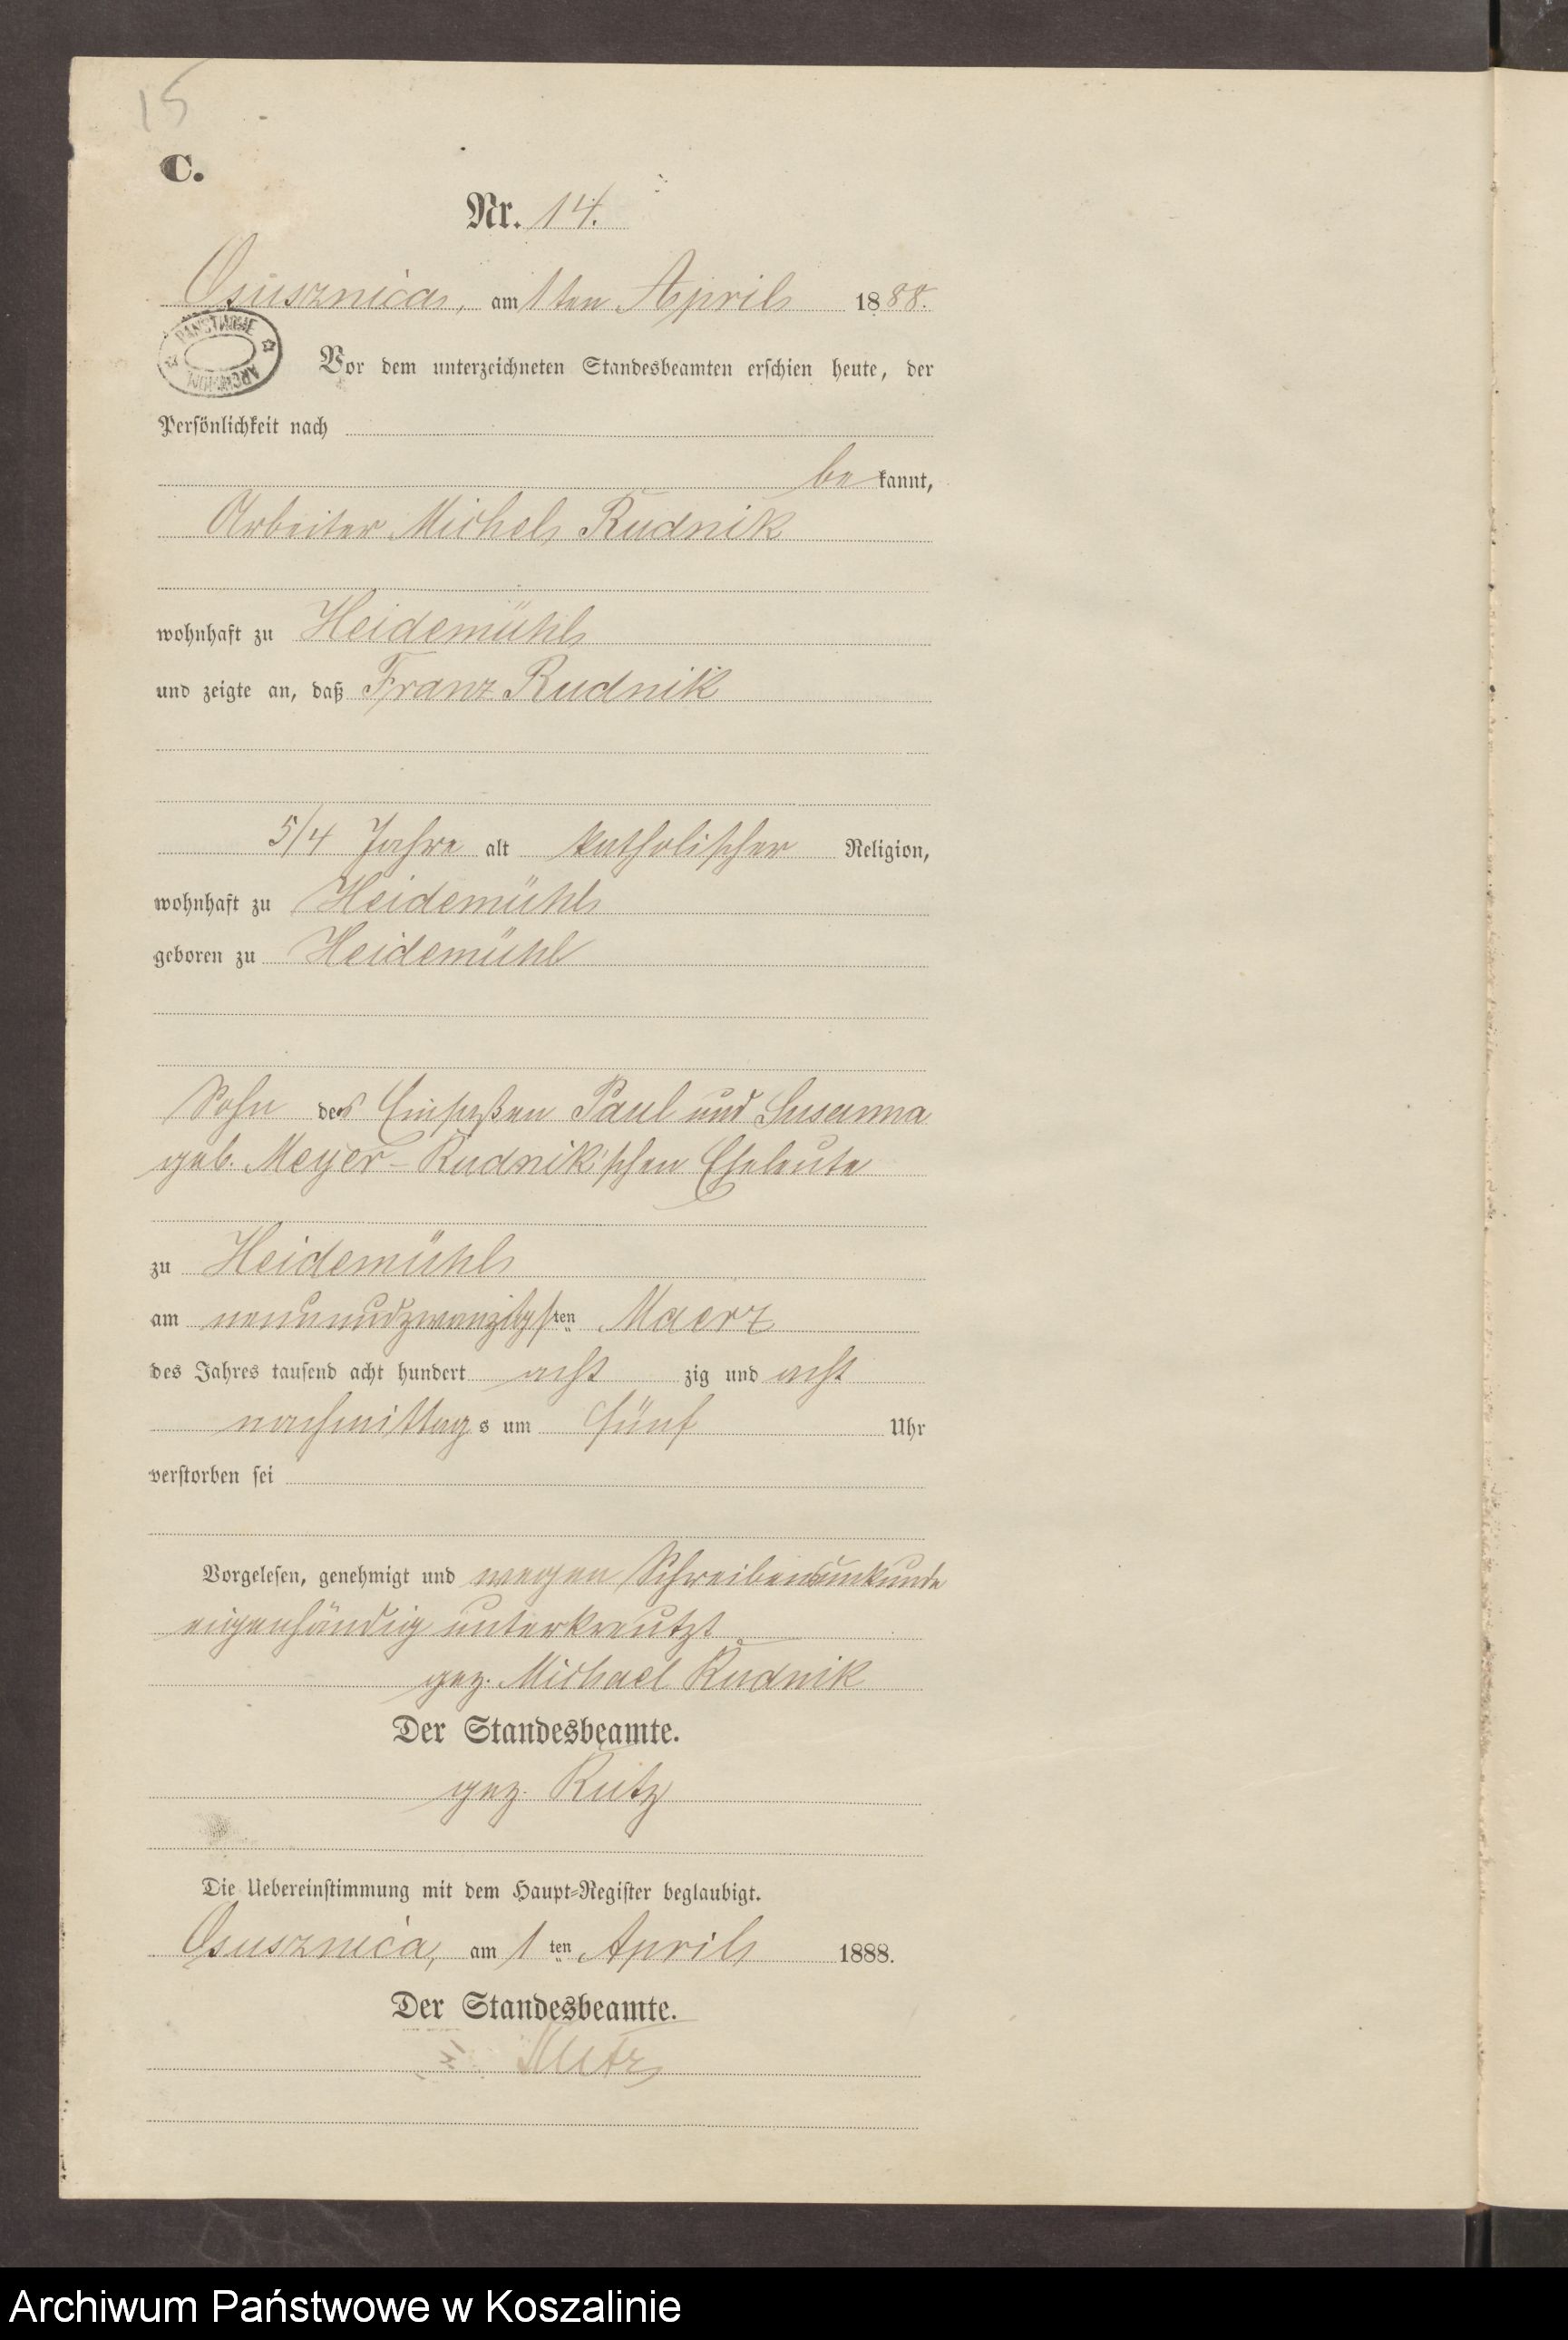 15
C.
Nr. 14.
Osusznica, am 1ten April 1888.
PAŃSTWOWE ARCHIWUM
Vor dem unterzeichneten Standesbeamten erschien heute, der
Persönlichkeit nach
bekannt,
Arbeiter Michel Rudnik
wohnhaft zu Heidemühl
und zeigte an, daß Franz Rudnik
5/4 Jahre alt katholischer Religion,
wohnhaft zu Heidemühl
geboren zu Heidemühl
Sohn des Einsaßen Paul und Susanna
geb. Meyer-Rudnik'schen Eheleute
zu Heidemühl
am neunundzwanzigsten Maerz
des Jahres tausend acht hundert acht zig und acht
nachmittags um fünf Uhr
verstorben sei
Vorgelesen, genehmigt und wegen Schreibensunkunde
eigenhändig unterkreutzt
gez. Michael Rudnik
Der Standesbeamte.
gez. Rutz
Die Uebereinstimmung mit dem Haupt-Register beglaubigt.
Osusznica, am 1ten April 1888.
Der Standesbeamte.
Rutz
Archiwum Państwowe w Koszalinie